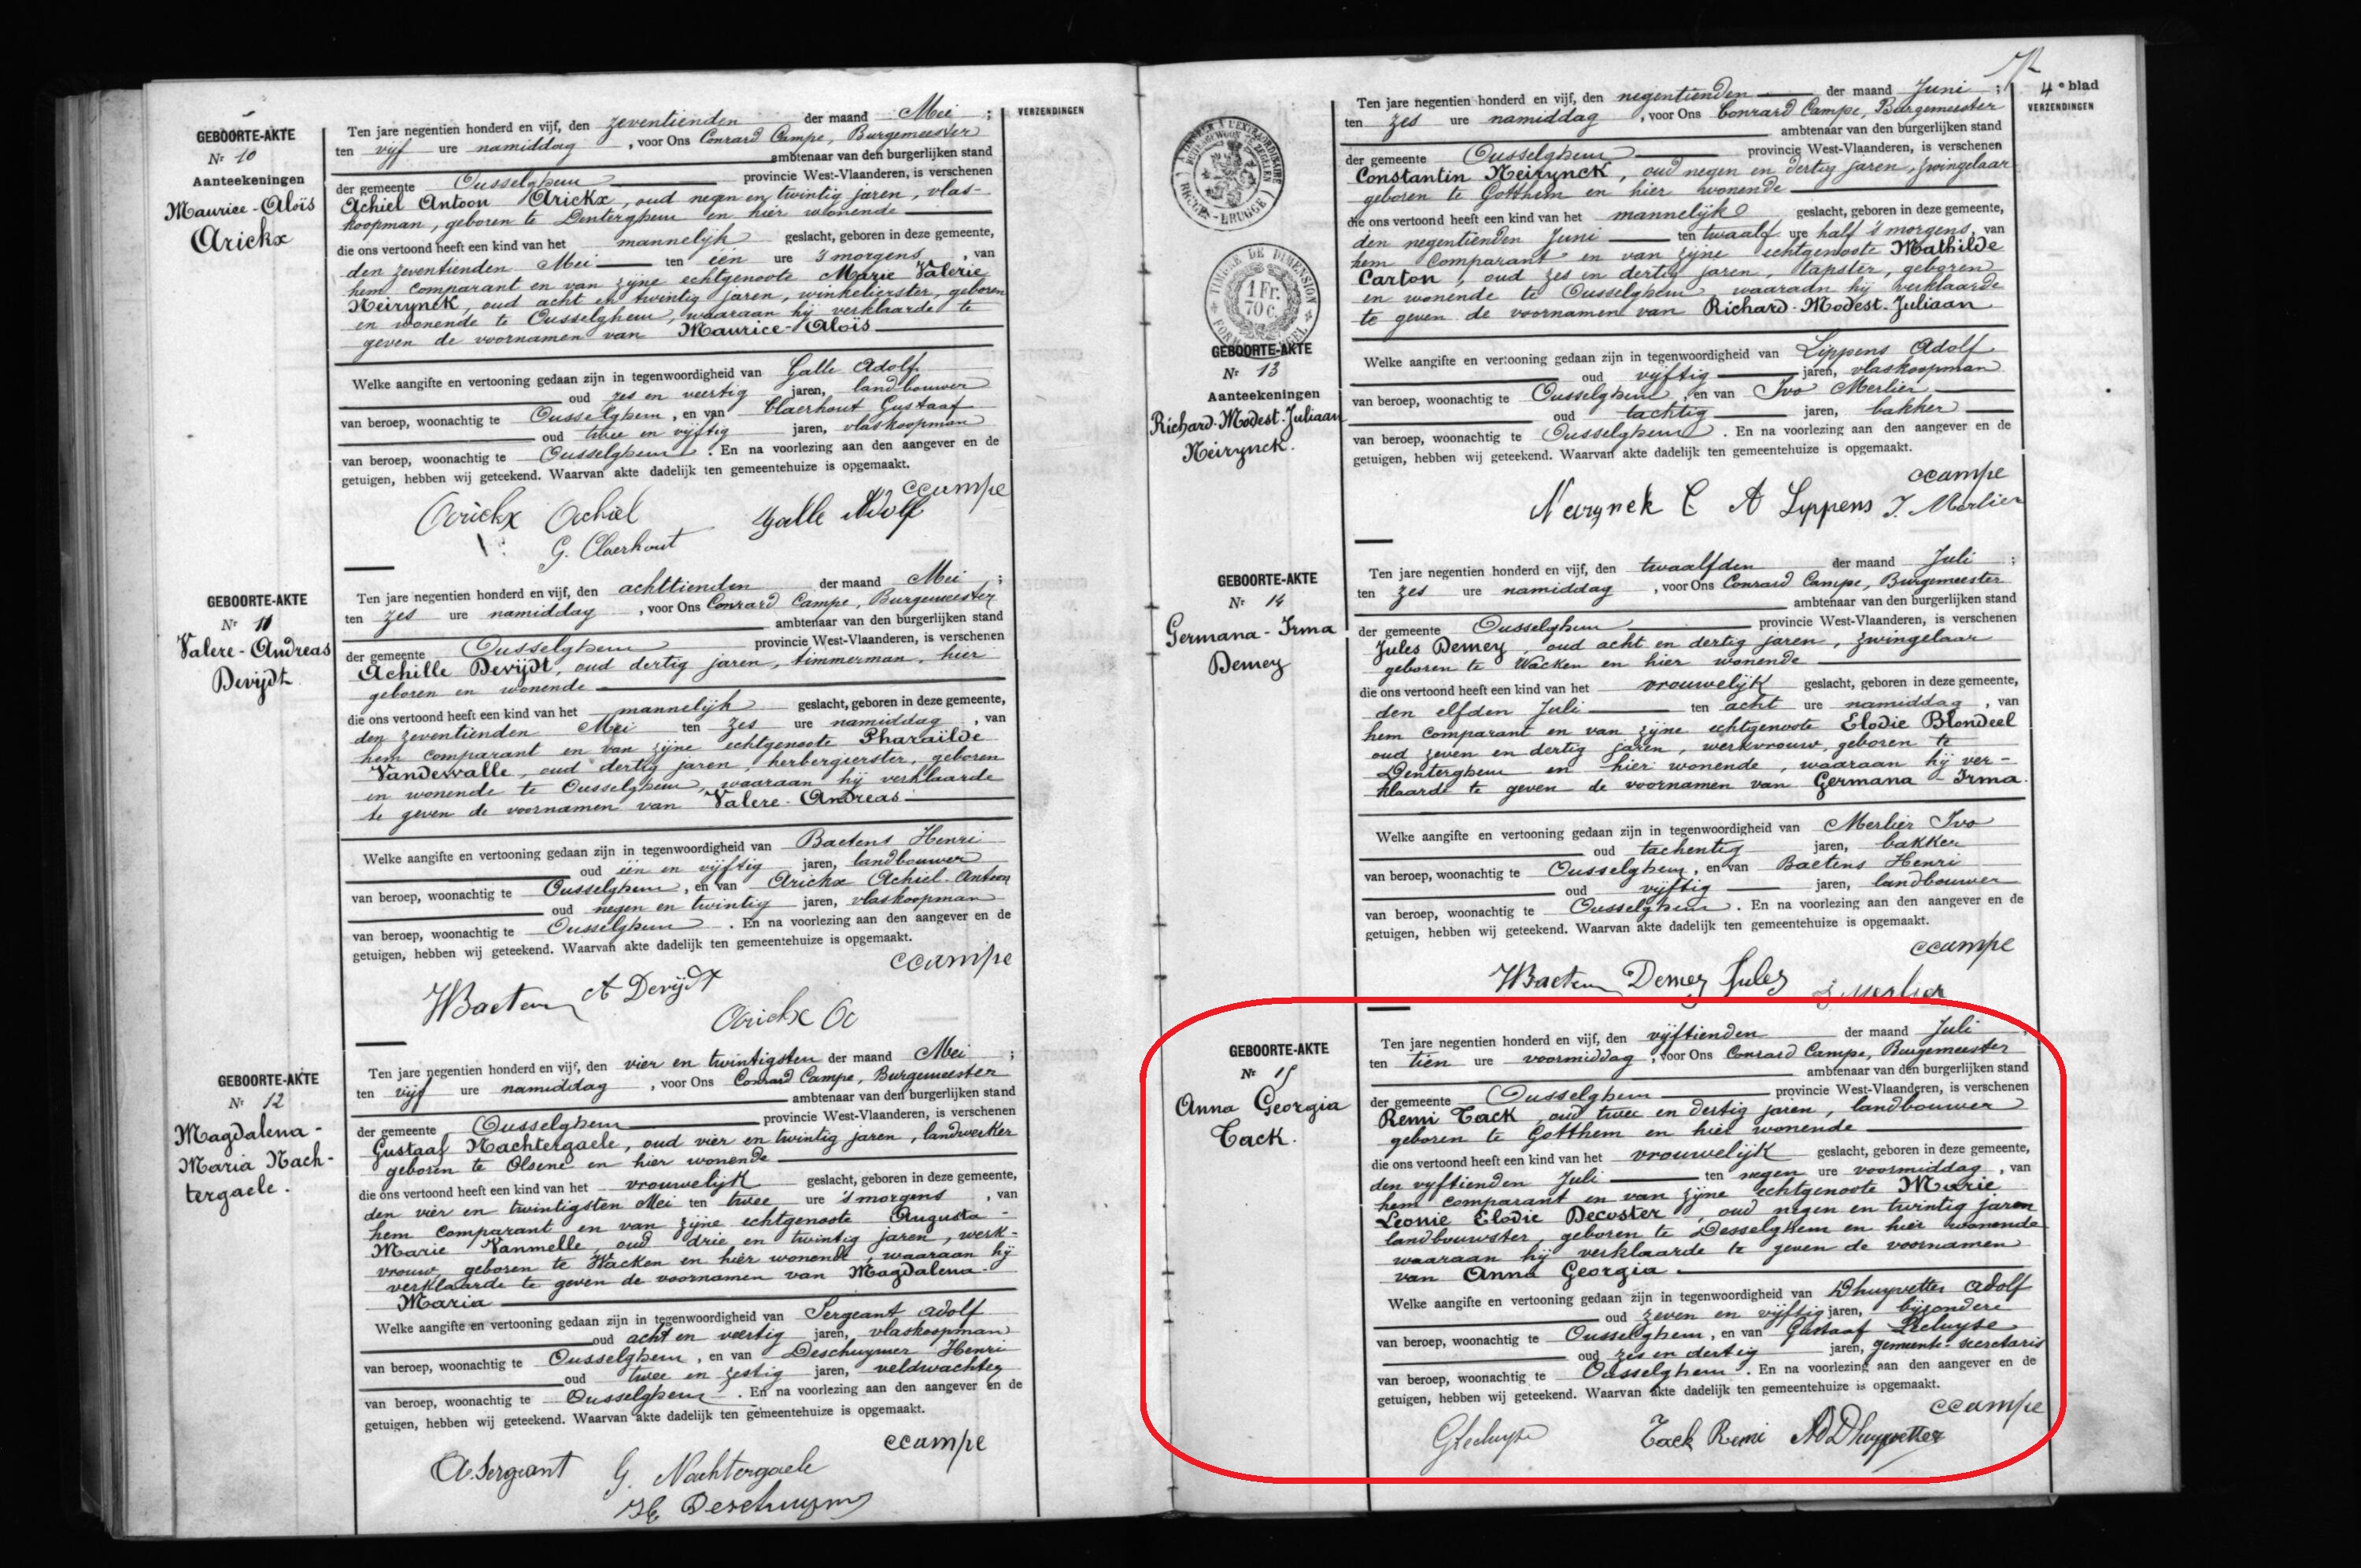 GEBOORTE-AKTE
Nr 10
Aanteekeningen
Maurice-Aloïs
Arickx
Ten jare negentien honderd en vijf, den zeventienden der maand Mei ;
ten vijf ure namiddag , voor Ons Conrard Campe, Burgemeester
ambtenaar van den burgerlijken stand
der gemeente Ousselghem provincie West-Vlaanderen, is verschenen
Achiel Antoon Arickx, oud negen en twintig jaren, vlas-
koopman, geboren te Denterghem en hier wonende
die ons vertoond heeft een kind van het mannelijk geslacht, geboren in deze gemeente,
den zeventienden Mei ten één ure 's morgens , van
hem comparant en van zijne echtgenoote Marie Valerie
Neirynck, oud acht en twintig jaren, winkelierster, geboren
en wonende te Ousselghem, waaraan hij verklaarde te
geven de voornamen van Maurice-Aloïs
Welke aangifte en vertooning gedaan zijn in tegenwoordigheid van Galle Adolf
oud zes en veertig jaren, landbouwer
van beroep, woonachtig te Ousselghem, en van Claerhout Gustaaf
oud twee en vijftig jaren, vlaskoopman
van beroep, woonachtig te Ousselghem . En na voorlezing aan den aangever en de
getuigen, hebben wij geteekend. Waarvan akte dadelijk ten gemeentehuize is opgemaakt.
ccampe
Arickx Achiel Galle Adolf
G. Claerhout
VERZENDINGEN
GEBOORTE-AKTE
Nr 11
Valere-Andreas
Devijdt
Ten jare negentien honderd en vijf, den achttienden der maand Mei ;
ten zes ure namiddag , voor Ons Conrard Campe, Burgemeester
ambtenaar van den burgerlijken stand
der gemeente Ousselghem provincie West-Vlaanderen, is verschenen
Achille Devijdt, oud dertig jaren, timmerman, hier
geboren en wonende
die ons vertoond heeft een kind van het mannelijk geslacht, geboren in deze gemeente,
den zeventienden Mei ten zes ure namiddag , van
hem comparant en van zijne echtgenoote Pharaïlde
Vandewalle, oud dertig jaren, herbergierster, geboren
en wonende te Ousselghem, waaraan hij verklaarde
te geven de voornamen van Valere-Andreas
Welke aangifte en vertooning gedaan zijn in tegenwoordigheid van Baetens Henri
oud één en vijftig jaren, landbouwer
van beroep, woonachtig te Ousselghem, en van Arickx Achiel-Antoon
oud negen en twintig jaren, vlaskoopman
van beroep, woonachtig te Ousselghem . En na voorlezing aan den aangever en de
getuigen, hebben wij geteekend. Waarvan akte dadelijk ten gemeentehuize is opgemaakt.
ccampe
HBaetens A Devijdt
Arickx Ac
GEBOORTE-AKTE
Nr 12
Magdalena-
Maria Nach-
tergaele.
Ten jare negentien honderd en vijf, den vier en twintigsten der maand Mei ;
ten vijf ure namiddag , voor Ons Conrard Campe, Burgemeester
ambtenaar van den burgerlijken stand
der gemeente Ousselghem provincie West-Vlaanderen, is verschenen
Gustaaf Nachtergaele, oud vier en twintig jaren, landwerker
geboren te Olsene en hier wonende
die ons vertoond heeft een kind van het vrouwelijk geslacht, geboren in deze gemeente,
den vier en twintigsten Mei ten twee ure 's morgens , van
hem comparant en van zijne echtgenoote Augusta-
Marie Vanmelle, oud drie en twintig jaren, werk-
vrouw, geboren te Wacken en hier wonende, waaraan hij
verklaarde te geven de voornamen van Magdalena-
Maria
Welke aangifte en vertooning gedaan zijn in tegenwoordigheid van Sergeant Adolf
oud acht en veertig jaren, vlaskoopman
van beroep, woonachtig te Ousselghem, en van Deschuymer Henri
oud twee en zestig jaren, veldwachter
van beroep, woonachtig te Ousselghem . En na voorlezing aan den aangever en de
getuigen, hebben wij geteekend. Waarvan akte dadelijk ten gemeentehuize is opgemaakt.
ccampe
A. Sergeant G. Nachtergaele
H. Deschuymer
4e blad
VERZENDINGEN
TIMBRE A L'EXTRAORDINAIRE
BUITENGEWOON ZEGEL
BRUGES-BRUGGE
TIMBRE DE DIMENSION
1 Fr.
70 C.
GEBOORTE-AKTE
Nr 13
Aanteekeningen
Richard-Modest-Juliaan
Neirynck.
Ten jare negentien honderd en vijf, den negentienden der maand Juni ;
ten zes ure namiddag , voor Ons Conrard Campe, Burgemeester
ambtenaar van den burgerlijken stand
der gemeente Ousselghem provincie West-Vlaanderen, is verschenen
Constantin Neirynck, oud negen en dertig jaren, zwingelaar
geboren te Gotthem en hier wonende
die ons vertoond heeft een kind van het mannelijk geslacht, geboren in deze gemeente,
den negentienden Juni ten twaalf ure half 's morgens, van
hem comparant en van zijne echtgenoote Mathilde
Carton, oud zes en dertig jaren, tapster, geboren
en wonende te Ousselghem, waaraan hij verklaarde
te geven de voornamen van Richard-Modest-Juliaan
Welke aangifte en vertooning gedaan zijn in tegenwoordigheid van Lippens Adolf
oud vijftig jaren, vlaskoopman
van beroep, woonachtig te Ousselghem, en van Ivo Merlier
oud tachtig jaren, bakker
van beroep, woonachtig te Ousselghem . En na voorlezing aan den aangever en de
getuigen, hebben wij geteekend. Waarvan akte dadelijk ten gemeentehuize is opgemaakt.
ccampe
Neirynck C A Lippens I. Merlier
GEBOORTE-AKTE
Nr 14
Germana-Irma
Demey
Ten jare negentien honderd en vijf, den twaalfden der maand Juli ;
ten zes ure namiddag , voor Ons Conrard Campe, Burgemeester
ambtenaar van den burgerlijken stand
der gemeente Ousselghem provincie West-Vlaanderen, is verschenen
Jules Demey, oud acht en dertig jaren, zwingelaar
geboren te Wacken en hier wonende
die ons vertoond heeft een kind van het vrouwelijk geslacht, geboren in deze gemeente,
den elfden Juli ten acht ure namiddag , van
hem comparant en van zijne echtgenoote Elodie Blondeel
oud zeven en dertig jaren, werkvrouw, geboren te
Denterghem en hier wonende, waaraan hij ver-
klaarde te geven de voornamen van Germana-Irma.
Welke aangifte en vertooning gedaan zijn in tegenwoordigheid van Merlier Ivo
oud tachentig jaren, bakker
van beroep, woonachtig te Ousselghem, en van Baetens Henri
oud vijftig jaren, landbouwer
van beroep, woonachtig te Ousselghem . En na voorlezing aan den aangever en de
getuigen, hebben wij geteekend. Waarvan akte dadelijk ten gemeentehuize is opgemaakt.
ccampe
HBaetens Demey Jules I Merlier
GEBOORTE-AKTE
Nr 15
Anna Georgia
Tack.
Ten jare negentien honderd en vijf, den vijftienden der maand Juli ;
ten tien ure voormiddag , voor Ons Conrard Campe, Burgemeester
ambtenaar van den burgerlijken stand
der gemeente Ousselghem provincie West-Vlaanderen, is verschenen
Remi Tack, oud twee en dertig jaren, landbouwer
geboren te Gotthem en hier wonende
die ons vertoond heeft een kind van het vrouwelijk geslacht, geboren in deze gemeente,
den vyftienden Juli ten negen ure voormiddag , van
hem comparant en van zijne echtgenoote Marie
Leonie Elodie Decoster, oud negen en twintig jaren
landbouwster, geboren te Desselghem en hier wonende
waaraan hij verklaarde te geven de voornamen
van Anna Georgia.
Welke aangifte en vertooning gedaan zijn in tegenwoordigheid van Dhuyvetter Adolf
oud zeven en vijftig jaren, bijzondere
van beroep, woonachtig te Ousselghem, en van Gustaaf Lecluyse
oud zes en dertig jaren, gemeente-secretaris
van beroep, woonachtig te Ousselghem . En na voorlezing aan den aangever en de
getuigen, hebben wij geteekend. Waarvan akte dadelijk ten gemeentehuize is opgemaakt.
ccampe
GLecluyse Tack Remi AdDhuyvetter